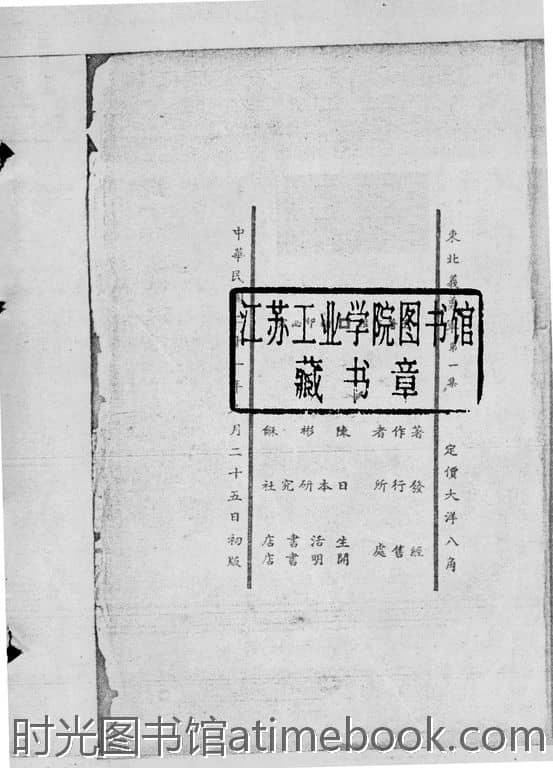 東北義 第一集 定價大洋八角
著作者 陳彬龢
發行所 日本研究社
經售處 生活書店
開明書店
中華民 一年 月二十五日初版
江苏工业学院图书馆
藏书章
时光图书馆atimebook.com